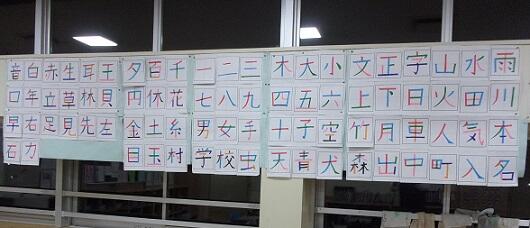 音白赤生耳王夕百千一二三木大小文正字山水雨
口年立草林貝円休花七八九四五六上下日火田川
早右足見先左金土糸男女手十子空竹月車人気本
石力目玉村学校虫天青犬森出中町入名